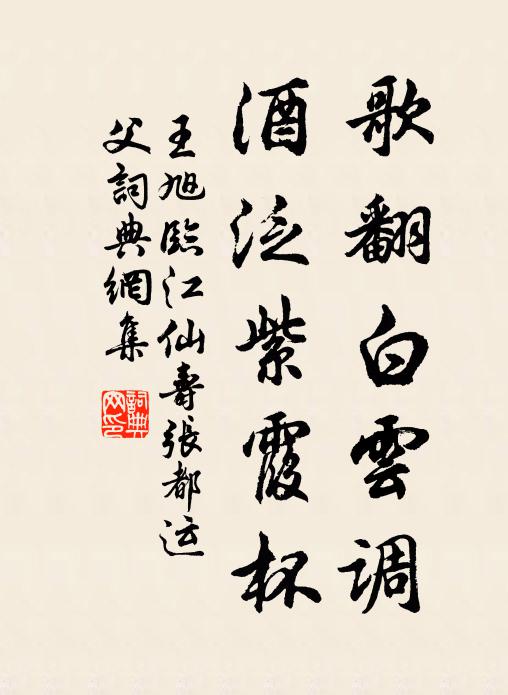 歌翻白雲調
酒泛紫霞杯
王旭臨江仙壽張都运
父詞典網集
詞典
网印